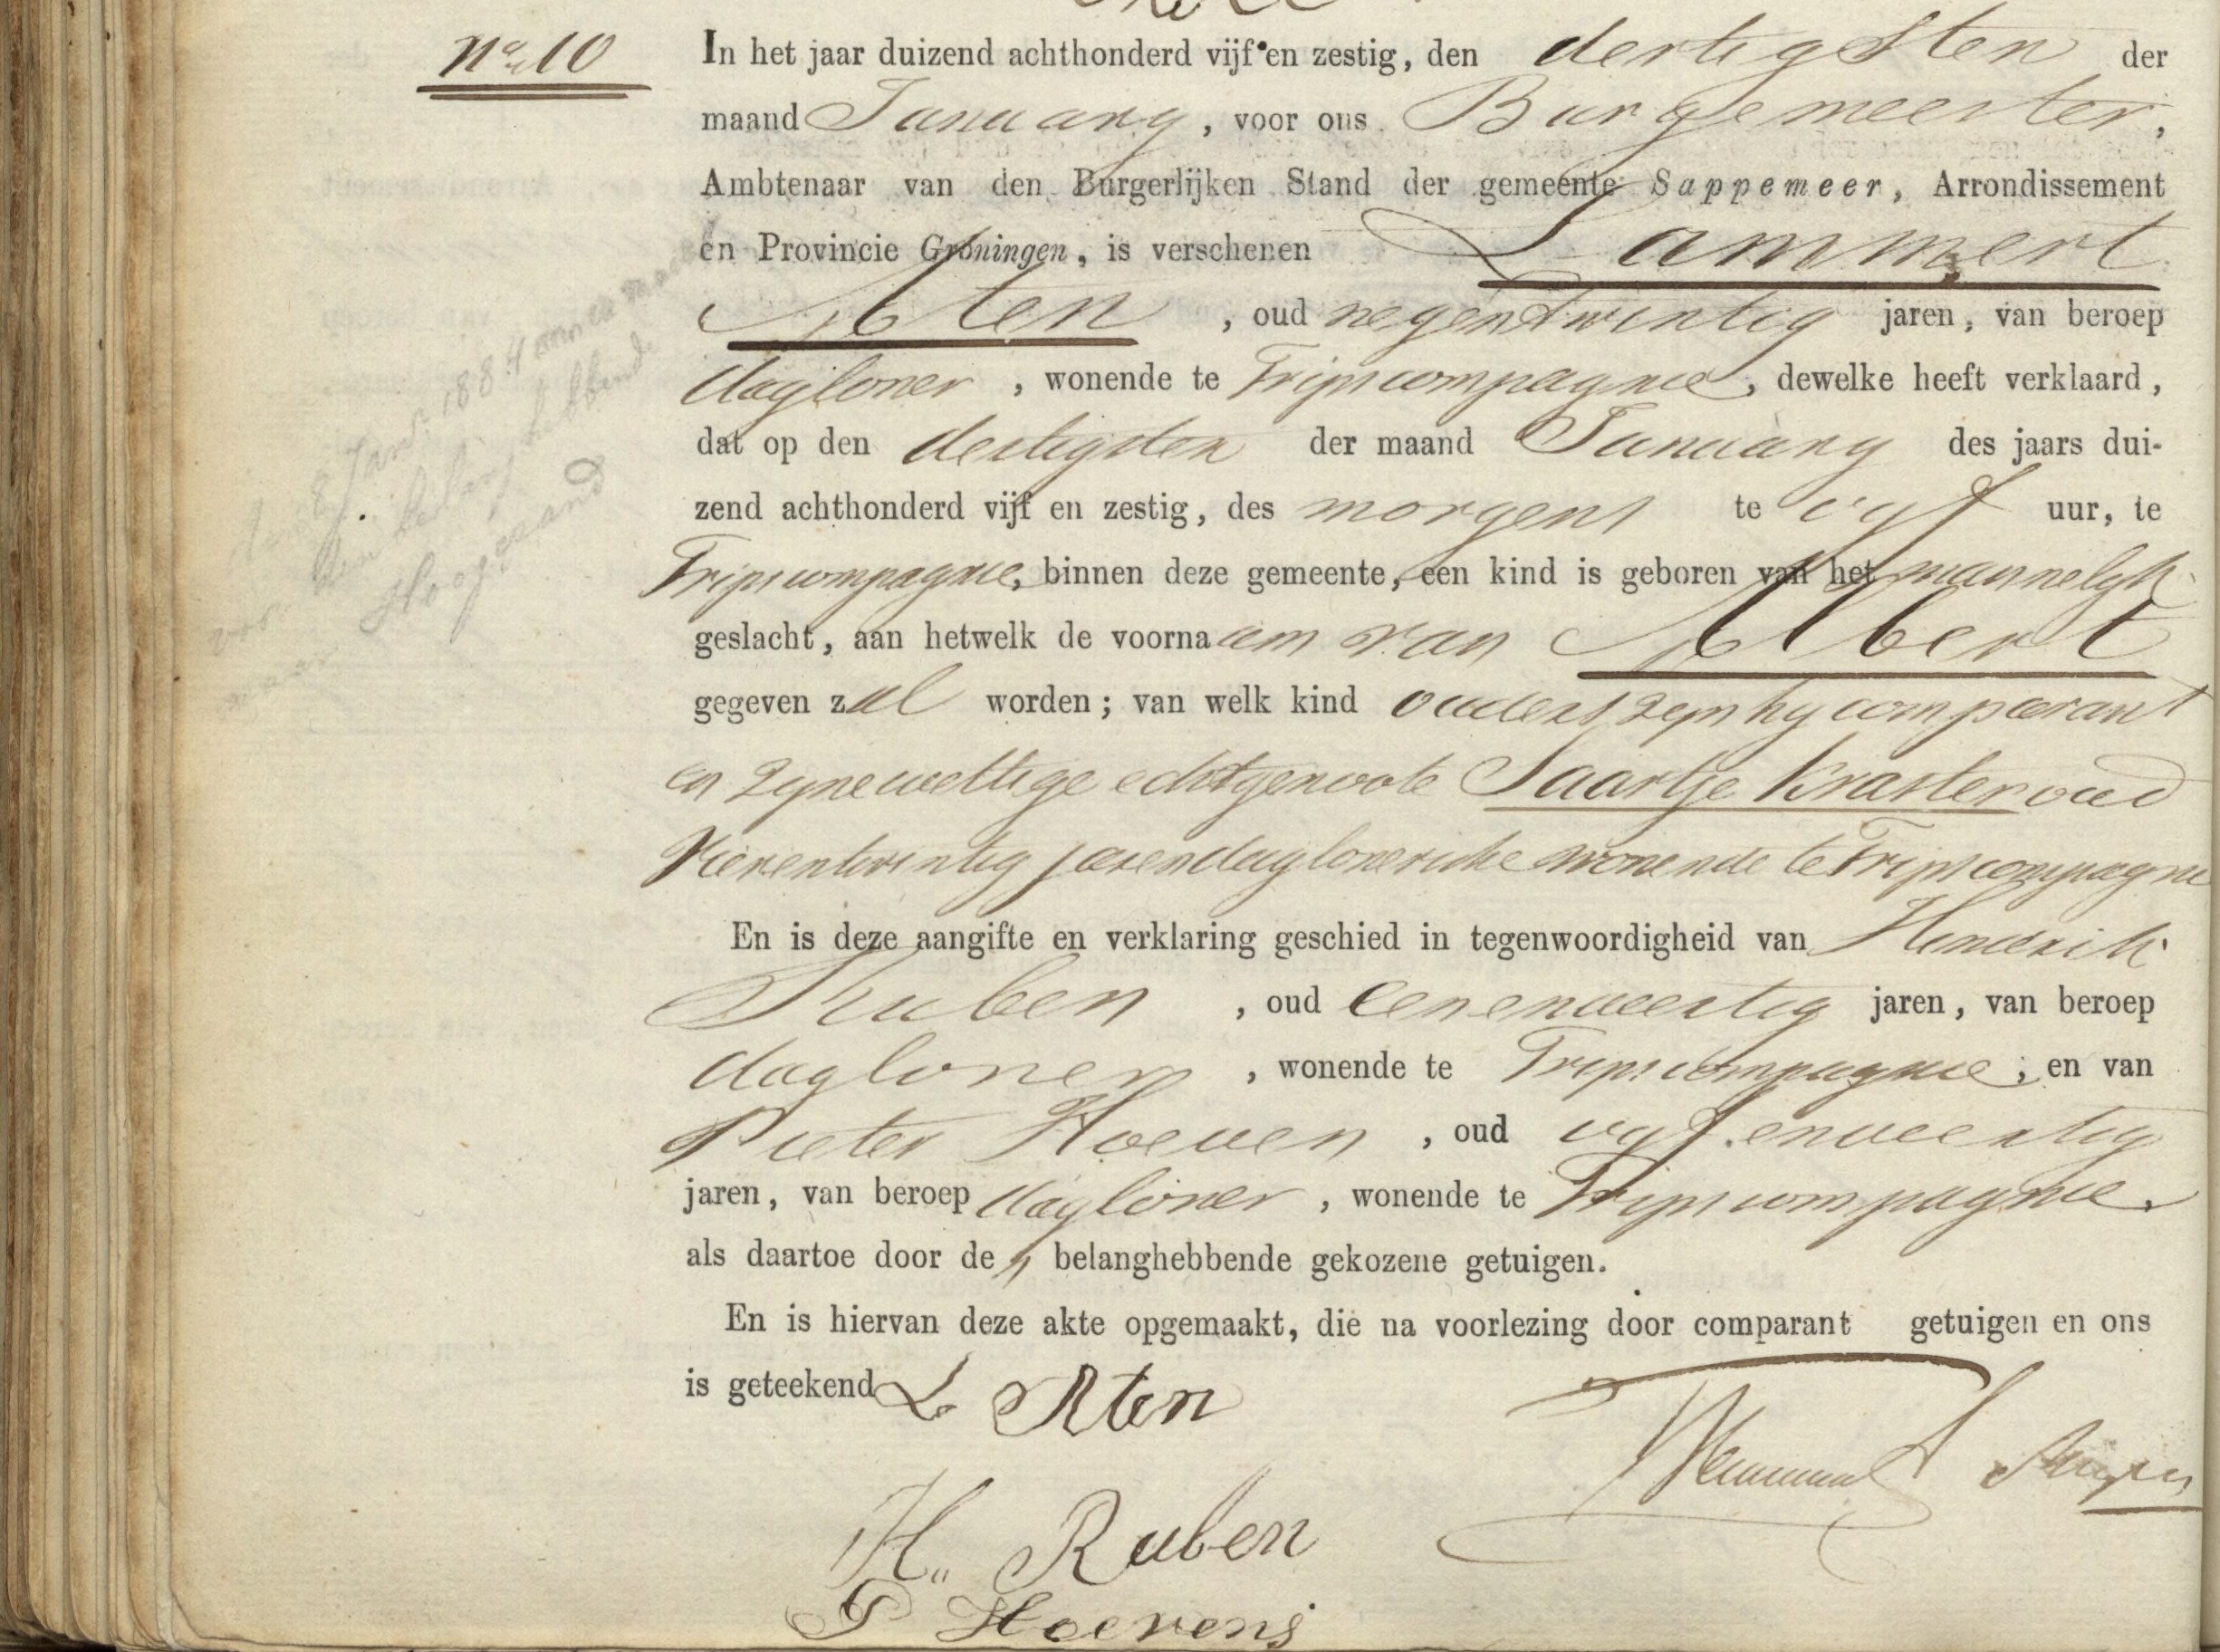 No 10
In het jaar duizend achthonderd vijf en zestig, den dertigsten der
maand January, voor ons Burgemeester,
Ambtenaar van den Burgerlijken Stand der gemeente Sappemeer, Arrondissement
en Provincie Groningen, is verschenen Lammert
Aten, oud negentwintig jaren, van beroep
dagloner, wonende te Tripscompagnie, dewelke heeft verklaard,
dat op den dertigsten der maand January des jaars dui-
zend achthonderd vijf en zestig, des morgens te vyf uur, te
Tripscompagnie, binnen deze gemeente, een kind is geboren van het mannelyk
geslacht, aan hetwelk de voornaam van Albert
gegeven zal worden; van welk kind ouders zyn hy comparant
en zyne wettige echtgenoote Saartje Kraster oud
Vierentwintig jaren daglonersche wonende te Tripscompagnie
En is deze aangifte en verklaring geschied in tegenwoordigheid van Henderik
Ruben, oud eenenveertig jaren, van beroep
dagloner, wonende te Tripscompagnie; en van
Pieter Hoeven, oud vyf enveertig
jaren, van beroep dagloner, wonende te Tripscompagnie.
als daartoe door de n belanghebbende gekozene getuigen.
En is hiervan deze akte opgemaakt, die na voorlezing door comparant getuigen en ons
is geteekend L Aten
H. Ruben
P Hoevens
8 Jan. 1884
den belanghebbende
Hoogezand